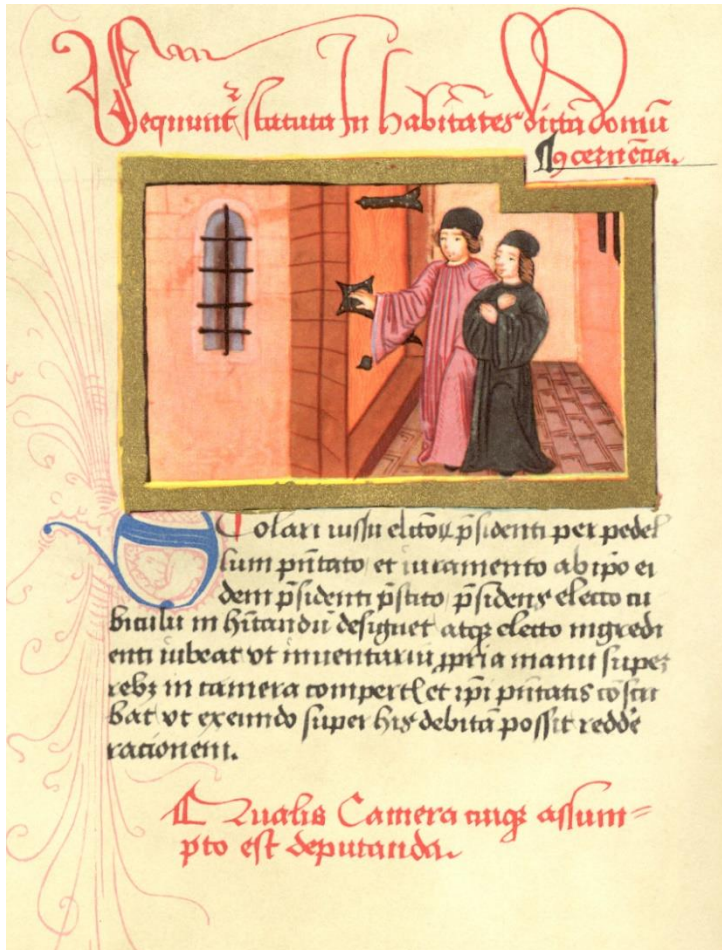 Sequunt᷑ statuta Inhabitātes dictā domū
ꝯcernētia.
Scolari iussu elctoꝝ p̄sidenti per pedel
lum pn̄tato et iuramento ab ip̄o ei
dem p̄sidenti p̄stito p̄sidens electo cu
biculū inhītandū designet atqꝫ electo ingredi
enti iubeat vt inuentariū ꝓpria manu super
rebꝫ in camera compert᷑ et ip̄i pn̄tatis cōscri
bat vt exeundo super his debitā possit reddē
racionem.
¶ Qualis Camera cuiqꝫ assum=
pto est deputanda.